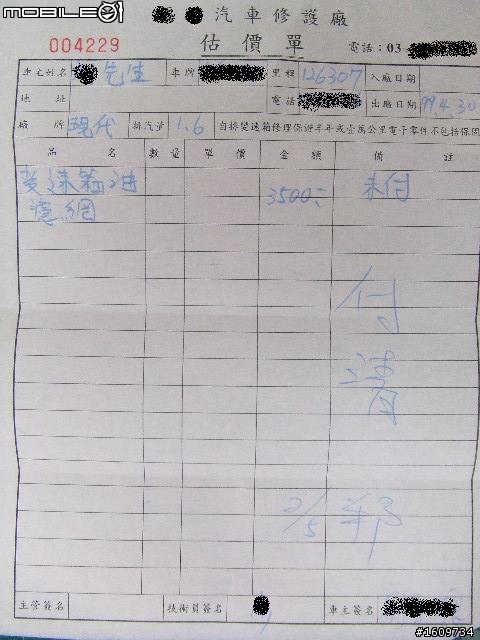 MOBILE01
汽車修護廠
004229 估價單 電話：03-
車主姓名 先生 車牌 里程 126307 入廠日期
地址 電話 出廠日期 99.4.30
廠牌 現代 排汽量 1.6 自排變速箱修理保證半年或壹萬公里電子零件不包括保固
品名 數量 單價 金額 備註
變速箱油 3500 未付
濾網
付
清
2/5
主管簽名 技術員簽名 車主簽名
#1609734